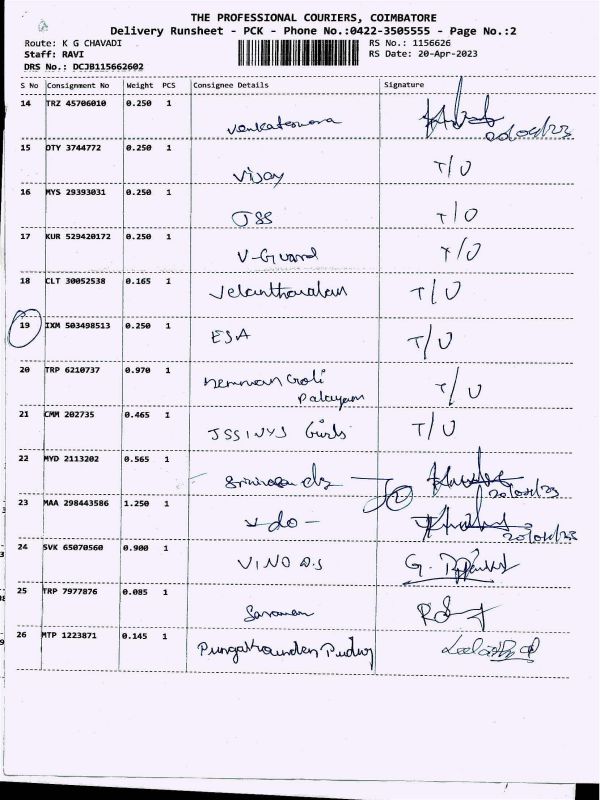 THE PROFESSIONAL COURIERS, COIMBATORE
Delivery Runsheet - PCK - Phone No.:0422-3505555 - Page No.:2
Route: K G CHAVADI
RS No.: 1156626
Staff: RAVI
RS Date: 20-Apr-2023
DRS No.: DCJB115662602
S No Consignment No Weight PCS Consignee Details Signature
14 TRZ 45706010 0.250 1
Venkateswara 20/04/23
15 OTY 3744772 0.250 1
Vijay T/O
16 MYS 29393031 0.250 1
JSS T/O
17 KUR 529420172 0.250 1
V-Guard T/O
18 CLT 30052538 0.165 1
T/O
19 IXM 503498513 0.250 1
ESA T/O
20 TRP 6210737 0.970 1
Palayam T/O
21 CMM 202735 0.465 1
Girls T/O
22 MYD 2113202 0.565 1
2 20/04/23
23 MAA 298443586 1.250 1
- do - 20/04/23
24 SVK 65070560 0.900 1
G.
25 TRP 7977876 0.085 1
Saravanan
26 MTP 1223871 0.145 1